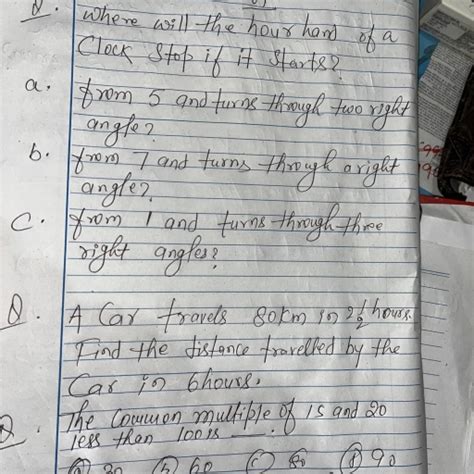 Q. Where will the hour hand of a
Clock Stop if it Starts?
a. from 5 and turns through two right
angle?
b. from 7 and turns through a right
angle?
C. from 1 and turns through three
right angles?
Q. A Car travels 80km in 2 1/2 hours.
Find the distance travelled by the
Car in 6hours.
Q. The Common multiple of 15 and 20
less than 100 is ___.
(a) 30 (b) 60 (c) 80 (d) 90